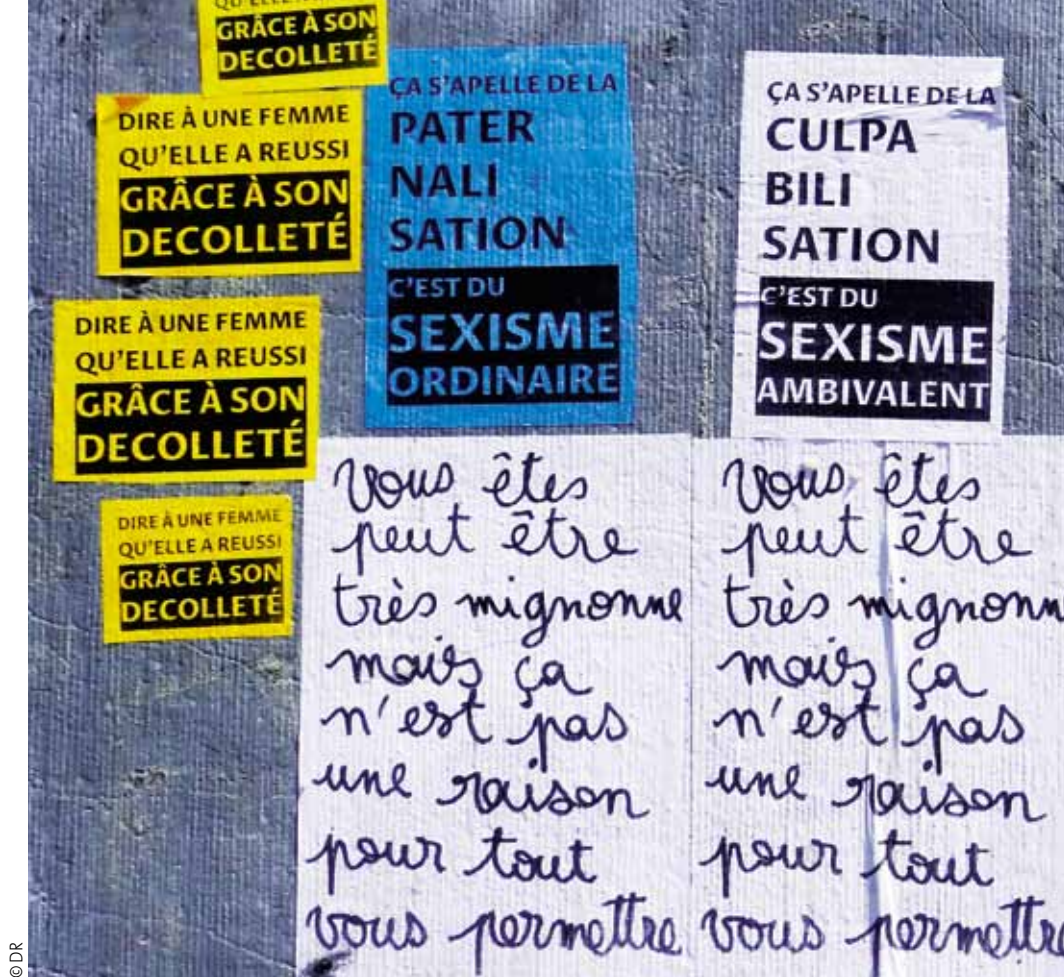 QU'ELLE A REUSSI
GRÂCE À SON
DECOLLETÉ
DIRE À UNE FEMME
QU'ELLE A REUSSI
GRÂCE À SON
DECOLLETÉ
DIRE À UNE FEMME
QU'ELLE A REUSSI
GRÂCE À SON
DECOLLETÉ
DIRE À UNE FEMME
QU'ELLE A REUSSI
GRÂCE À SON
DECOLLETÉ
ÇA S'APELLE DE LA
PATER
NALI
SATION
C'EST DU
SEXISME
ORDINAIRE
ÇA S'APELLE DE LA
CULPA
BILI
SATION
C'EST DU
SEXISME
AMBIVALENT
vous êtes
peut être
très mignonne
mais ça
n'est pas
une raison
pour tout
vous permettre
vous êtes
peut être
très mignonn
mais ça
n'est pas
une raison
pour tout
vous permettre
©DR